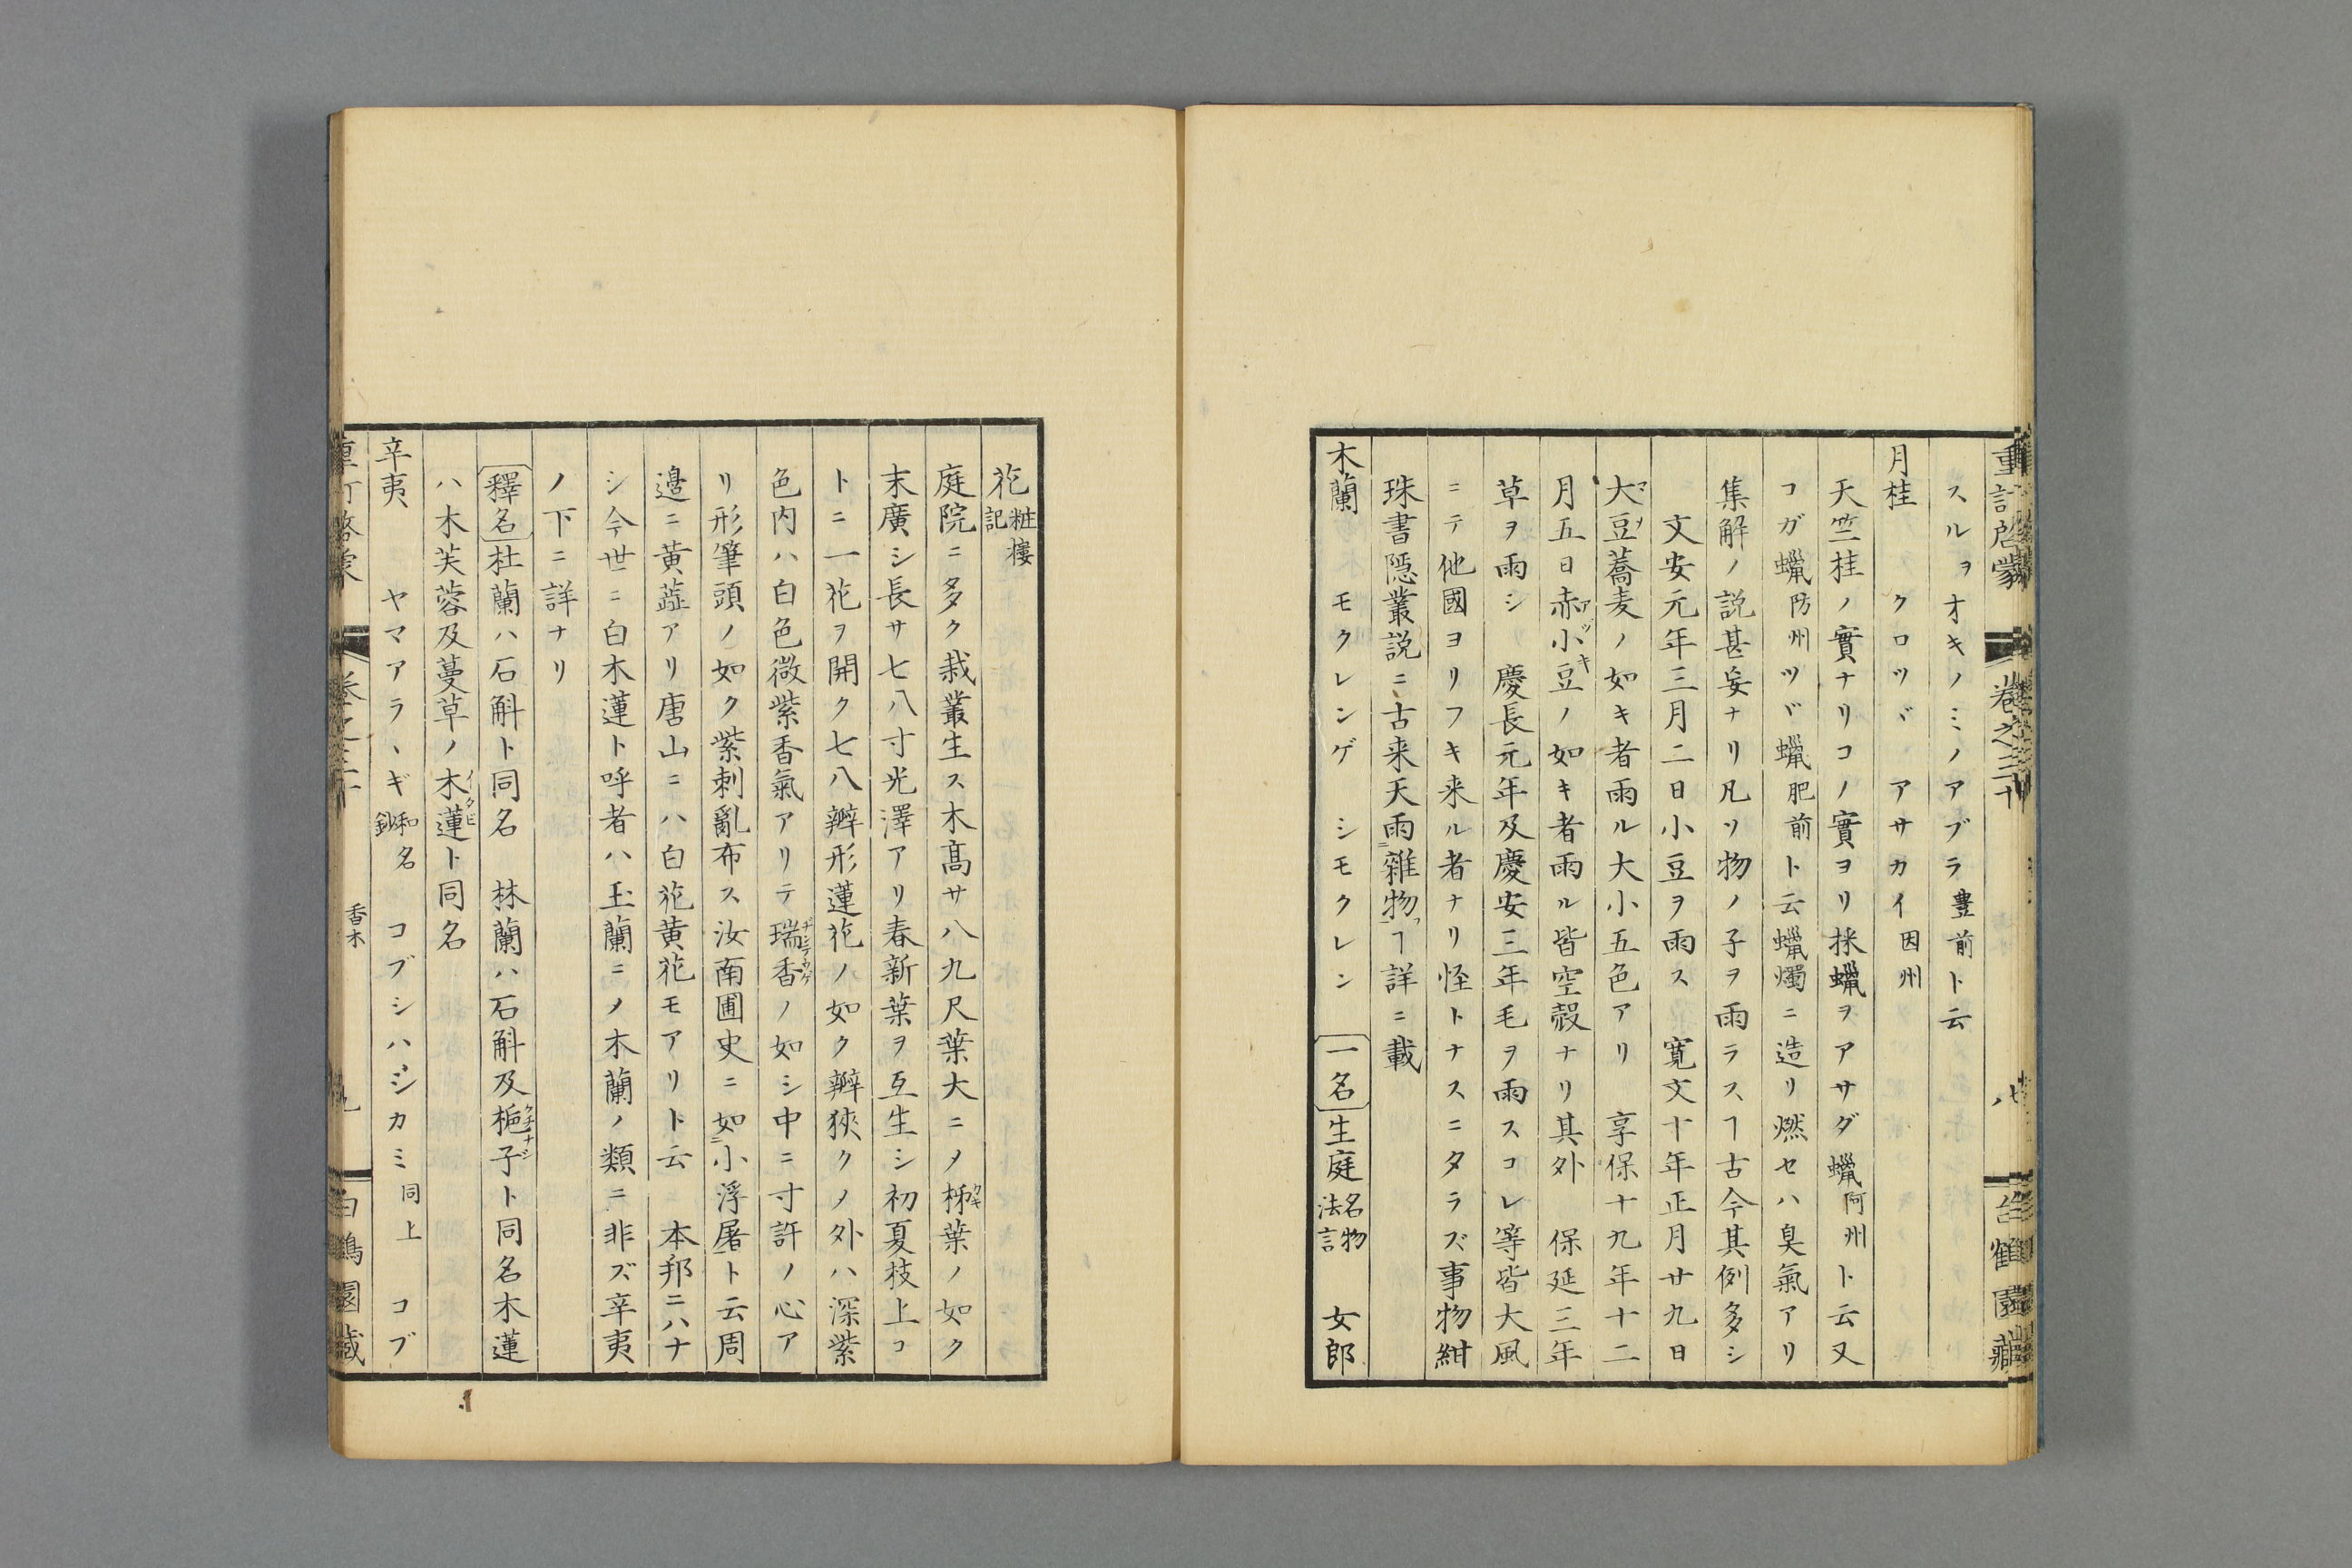 重訂啓蒙　巻之三十　八　白鶴園藏
スルヲオキノミノアブラ豊前ト云
月桂　クロツヾ　アサカイ因州
天竺桂ノ實ナリコノ實ヨリ採蠟ヲアサダ蠟阿州ト云又
コガ蠟防州ツヾ蠟肥前ト云蠟燭ニ造リ燃セハ臭氣アリ
集解ノ説甚妄ナリ凡ソ物ノ子ヲ雨ラスヿ古今其例多シ
文安元年三月二日小豆ヲ雨ス　寛文十年正月廿九日
大豆蕎麦ノ如キ者雨ル大小五色アリ　享保十九年十二
月五日赤小豆ノ如キ者雨ル皆空殻ナリ其外　保延三年
草ヲ雨シ　慶長元年及慶安三年毛ヲ雨スコレ等皆大風
ニテ他國ヨリフキ来ル者ナリ怪トナスニタラズ事物紺
珠書隠叢説ニ古来天雨雜物ヿ詳ニ載
木蘭　モクレンゲ　シモクレン　一名生庭名物法言　女郎
花粧樓記
庭院ニ多ク栽叢生ス木高サ八九尺葉大ニメ柹葉ノ如ク
末廣シ長サ七八寸光澤アリ春新葉ヲ互生シ初夏枝上コ
トニ一花ヲ開ク七八瓣形蓮花ノ如ク瓣狹クメ外ハ深紫
色内ハ白色微紫香氣アリテ瑞香ノ如シ中ニ寸許ノ心ア
リ形筆頭ノ如ク紫刺亂布ス汝南圃史ニ如小浮屠ト云周
邉ニ黄蕋アリ唐山ニハ白花黄花モアリト云　本邦ニハナ
シ今世ニ白木蓮ト呼者ハ玉蘭ニメ木蘭ノ類ニ非ズ辛夷
ノ下ニ詳ナリ
釋名杜蘭ハ石斛ト同名　林蘭ハ石斛及梔子ト同名木蓮
ハ木芙蓉及蔓草ノ木蓮ト同名
辛夷　ヤマアラヽギ和名鈔　コブシハジカミ同上　コブ
重訂啓蒙　巻之三十　香木　九　白鶴園藏